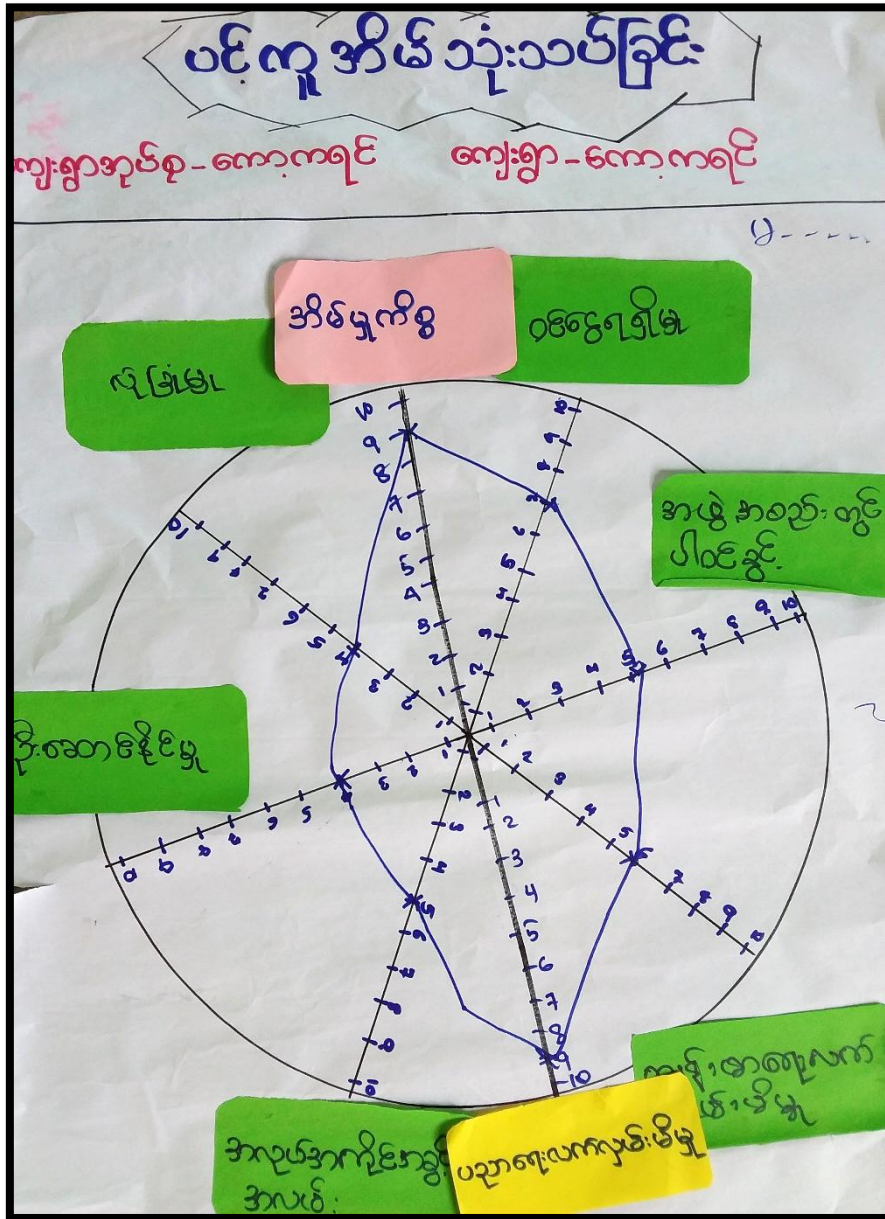 ပင့်ကူအိမ်သုံးသပ်ခြင်း
ကျေးရွာအုပ်စု-ကော့ကရင် ကျေးရွာ-ကော့ကရင်
အိမ်မှုကိစ္စ
ဝင်ငွေရရှိမှု
လုံခြုံမှု
အဖွဲ့အစည်းတွင်
ပါဝင်ခွင့်
ဦးဆောင်နိုင်မှု
ကျန်းမာရေးလက်
လှမ်းမီမှု
အလုပ်အကိုင်အခွင့်
အလမ်း
ပညာရေးလက်လှမ်းမီမှု
1 2 3 4 5 6 7 8 9 10